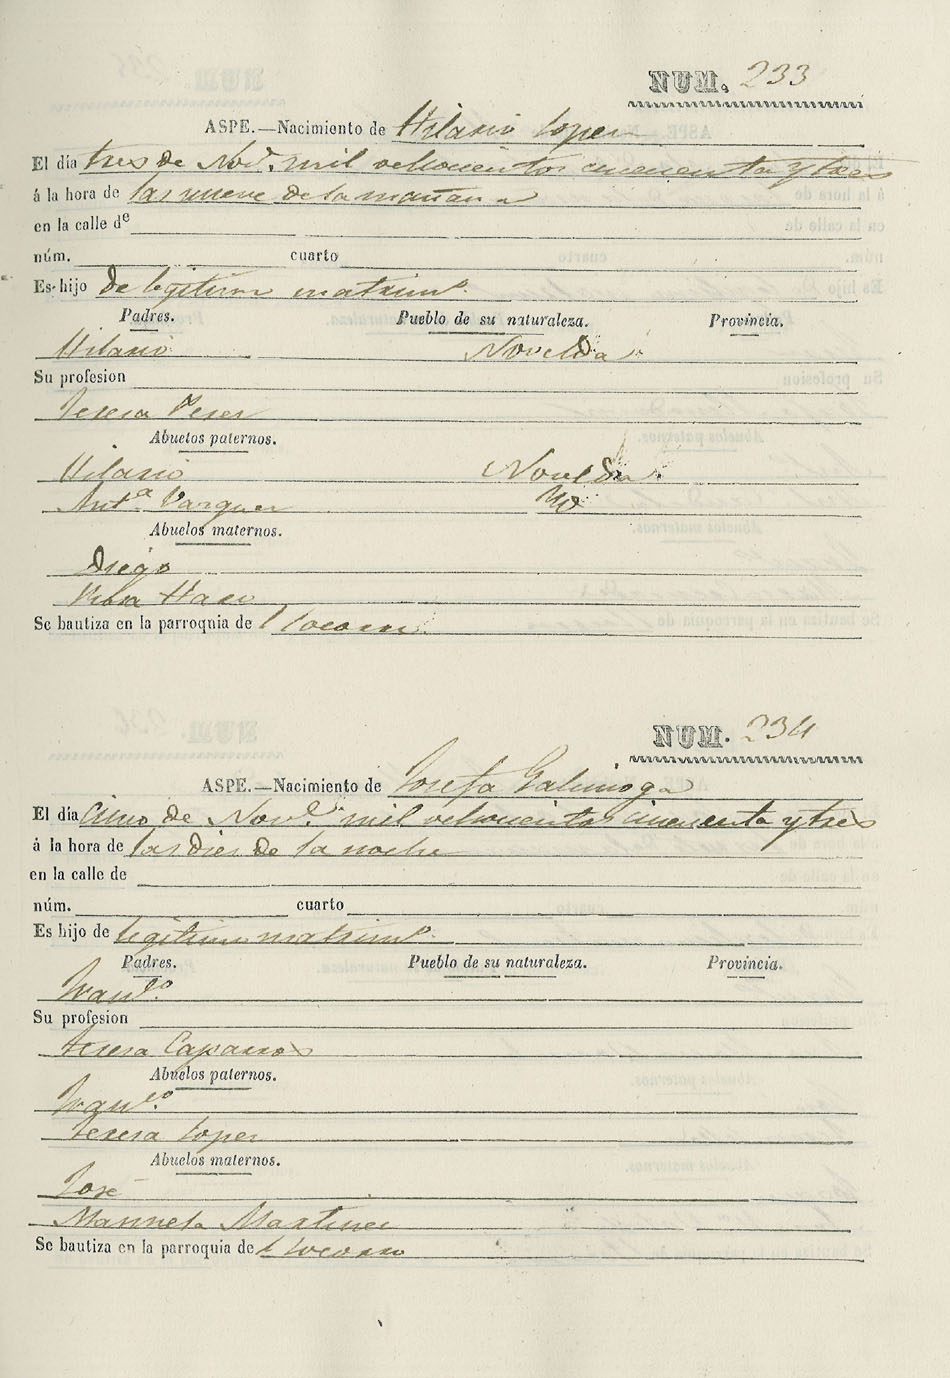 NUM. 233
ASPE.—Nacimiento de Hilario Lopez
El día tres de Nov.e mil ochocientos cincuenta y tres
á la hora de las nueve de la mañana
en la calle de
núm. cuarto
Es hijo de legitimo matrim.o
Padres. Pueblo de su naturaleza. Provincia.
Hilario Novelda
Su profesion
Teresa Perez
Abuelos paternos.
Hilario Novelda
Ant.a Vazquez
Abuelos maternos.
Diego
Se bautiza en la parroquia de l Socorro
NUM. 234
ASPE.—Nacimiento de Josefa Galinsoga
El día Cinco de Nov.e mil ochocientos cincuenta y tres
á la hora de las diez de la noche
en la calle de
núm. cuarto
Es hijo de legitimo matrim.o
Padres. Pueblo de su naturaleza. Provincia.
Fran.co
Su profesion
Teresa Caparros
Abuelos paternos.
Fran.co
Teresa Lopez
Abuelos maternos.
José
Manuela Martinez
Se bautiza en la parroquia de l Socorro